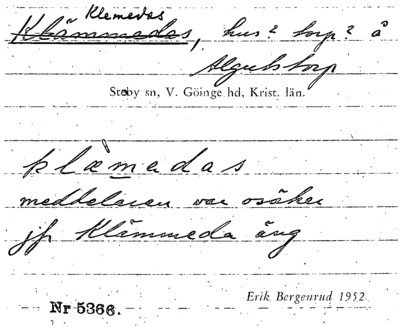 Klemedas
Klämmedas, hus? torp? å
Algutstorp
Stoby sn, V. Göinge hd, Krist. län.
klæmedas
meddelaren var osäker
jfr Klämmeda äng
Erik Bergenrud 1952
Nr 5366.